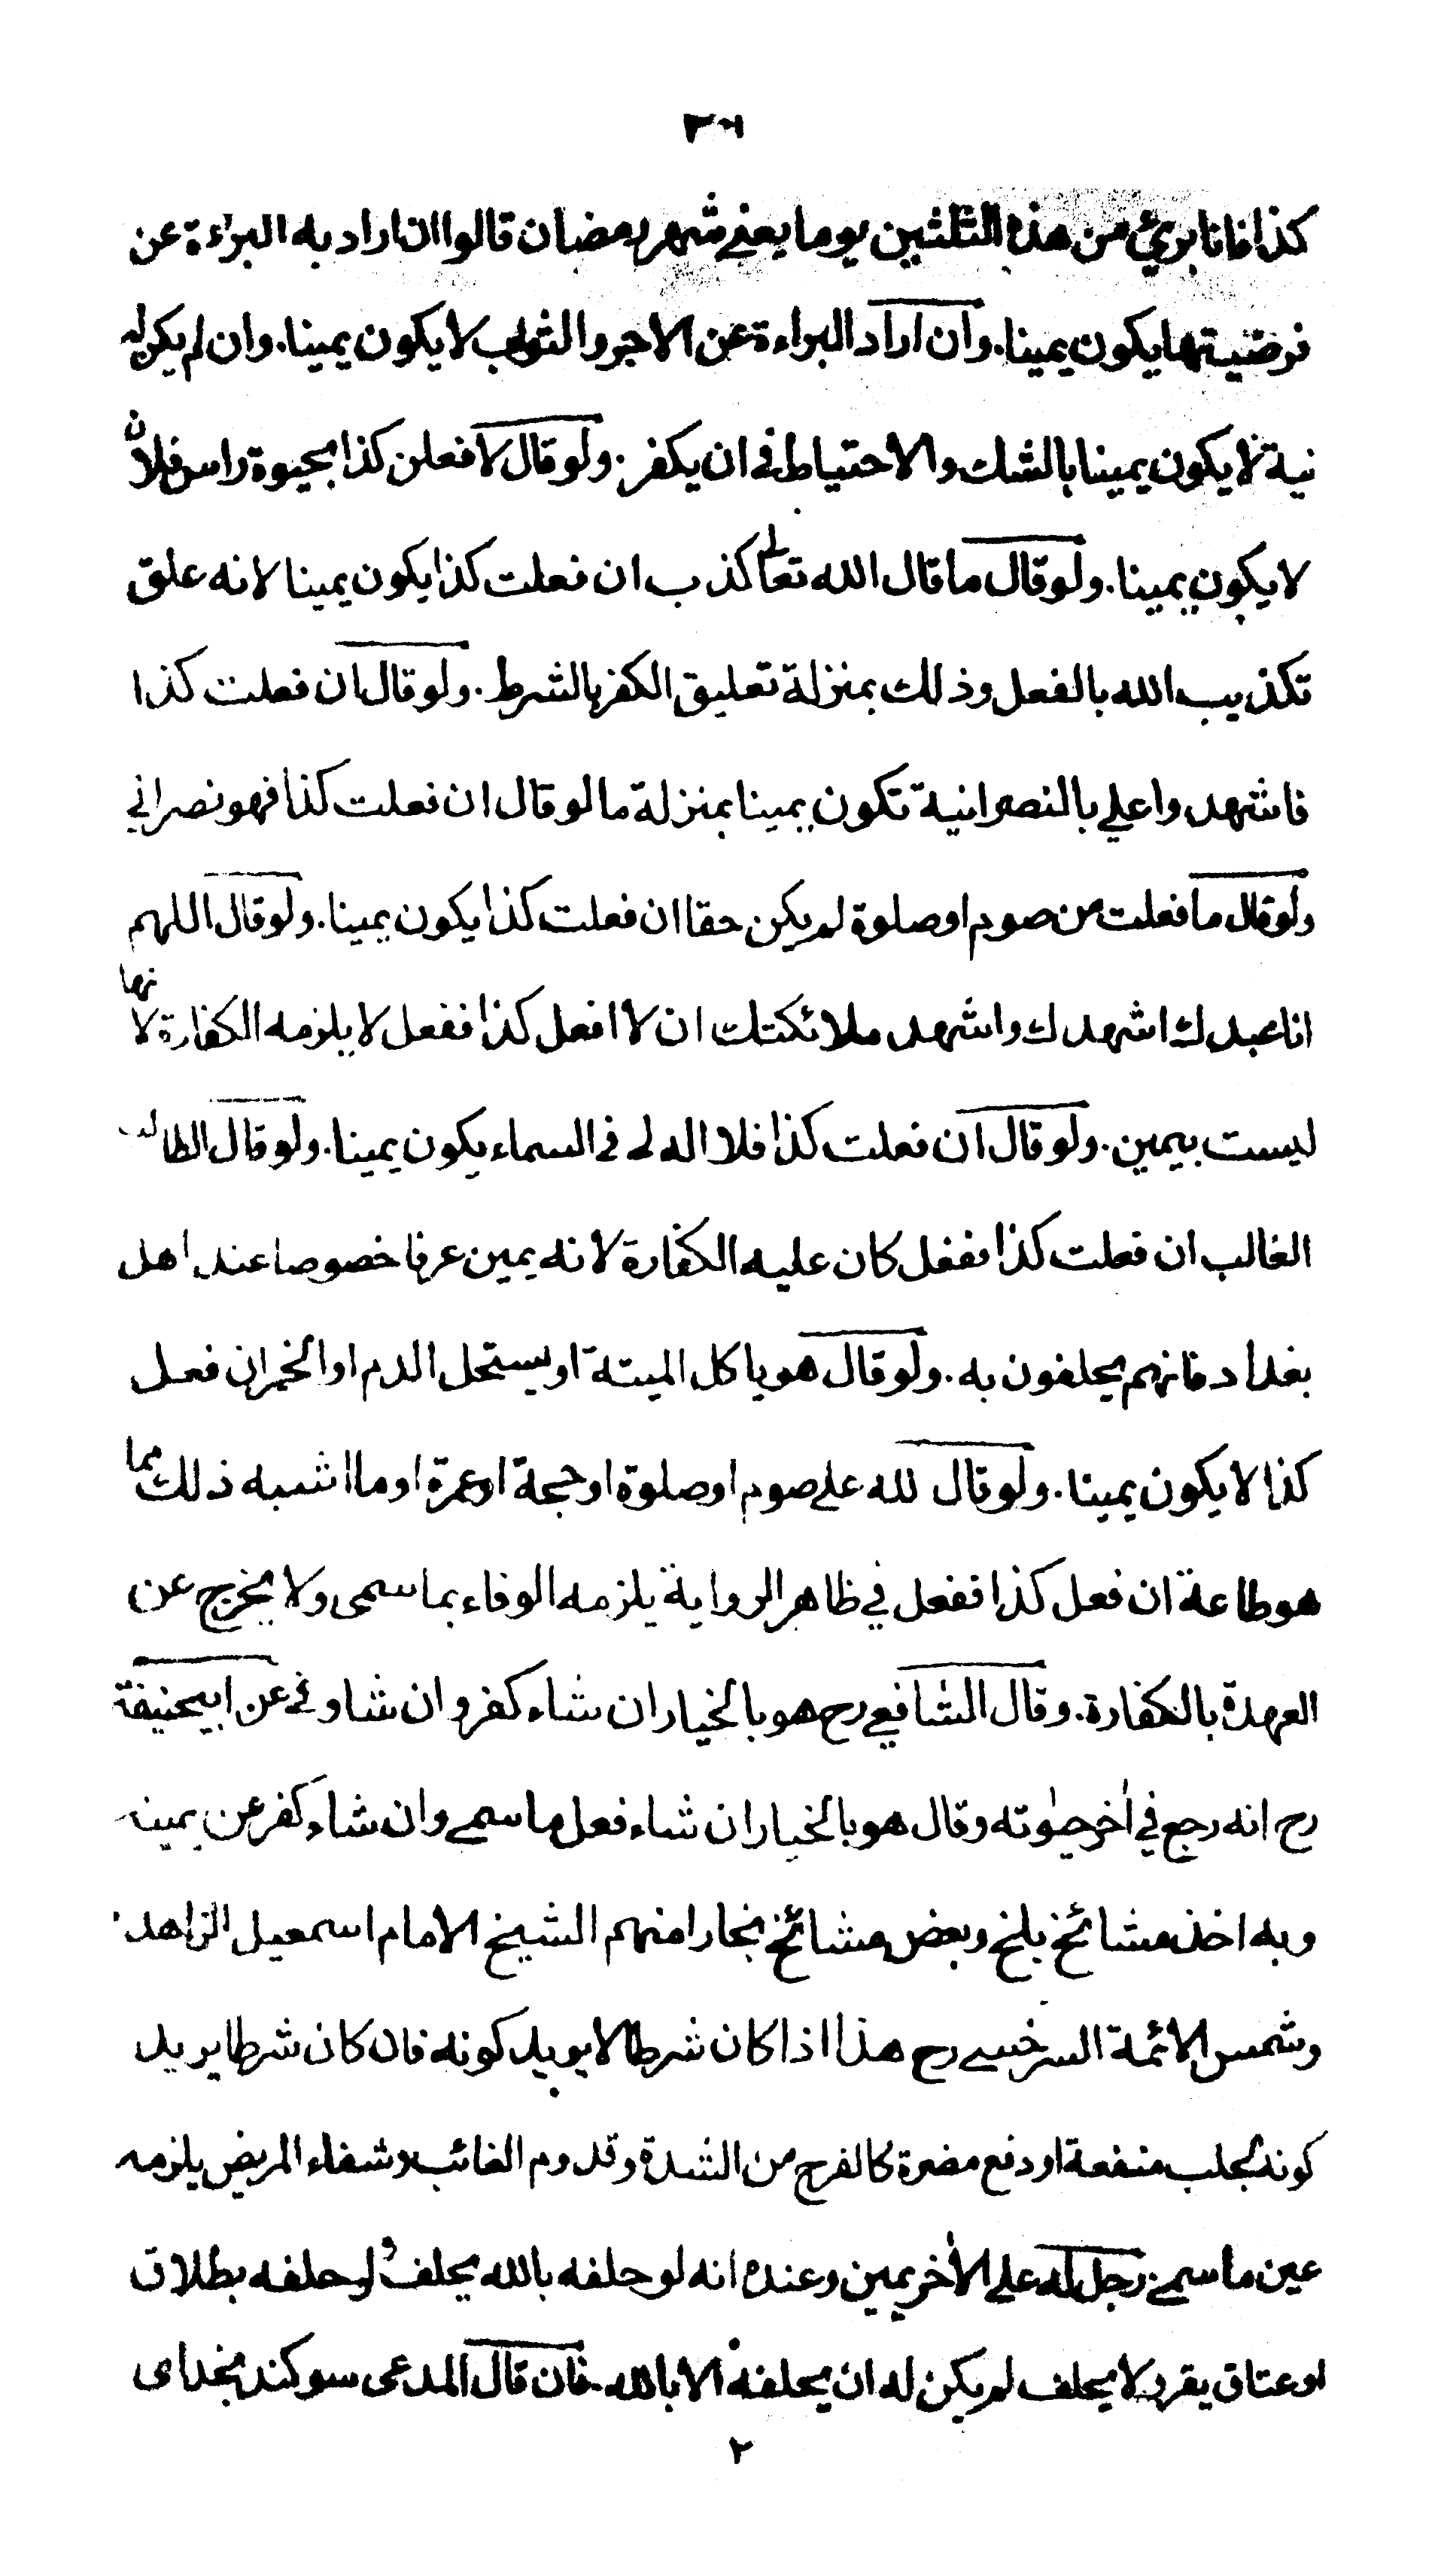 كذا فانا بريئ من هذه الثلثين يوما يعني شهر رمضان قالوا ان اراد به البراءة عن
فرضيتها يكون يمينا. وان اراد البراءة عن الاجر والثواب لا يكون يمينا. وان لم يكن له
نية لا يكون يمينا بالشك والاحتياط في ان يكفر. ولو قال لا فعلن كذا بحيوة راس فلان
لا يكون يمينا. ولو قال ما قال الله تعالى كذب ان فعلت كذا يكون يمينا لانه علق
تكذيب الله بالفعل وذلك بمنزلة تعليق الكفر بالشرط. ولو قال ان فعلت كذا
فاشهدوا علي بالنصرانية تكون يمينا بمنزلة ما لو قال ان فعلت كذا فهو نصراني
ولو قال ما فعلت من صوم او صلوة لم يكن حقا ان فعلت كذا يكون يمينا. ولو قال اللهم
انا عبدك اشهدك واشهد ملائكتك ان لا افعل كذا ففعل لا يلزمه الكفارة لانها
ليست بيمين. ولو قال ان فعلت كذا فلا اله لي في السماء يكون يمينا. ولو قال الطالب
الغالب ان فعلت كذا ففعل كان عليه الكفارة لانه يمين عرفا خصوصا عند اهل
بغداد فانهم يحلفون به. ولو قال هو ياكل الميتة او يستحل الدم او الخمر ان فعل
كذا لا يكون يمينا. ولو قال لله علي صوم او صلوة او حجة او عمرة او ما اشبه ذلك مما
هو طاعة ان فعل كذا ففعل في ظاهر الرواية يلزمه الوفاء بما سمى ولا يخرج عن
العهدة بالكفارة. وقال الشافعي رح هو بالخيار ان شاء كفر وان شاء وفي عن ابيحنيفة
رح انه رجع في اخر حيوته وقال هو بالخيار ان شاء فعل ما سمي وان شاء كفر عن يمينه
وبه اخذ مشائخ بلخ وبعض مشائخ بخارا منهم الشيخ الامام اسمعيل الزاهد
وشمس الائمة السرخسي رح هذا اذا كان شرطا لا يريد كونه فان كان شرطا يريد
كونه لجلب منفعة او دفع مضرة كالفرج من الشدة وقدوم الغائب وشفاء المريض يلزمه
عين ما سمي. رجل له على الاخر يمين وعنده انه لو حلفه بالله يحلف ولو حلفه بطلاق
او عتاق يقر ولا يحلف لم يكن له ان يحلفه الا بالله. فان قال المدعى سوكند بخداى
٢